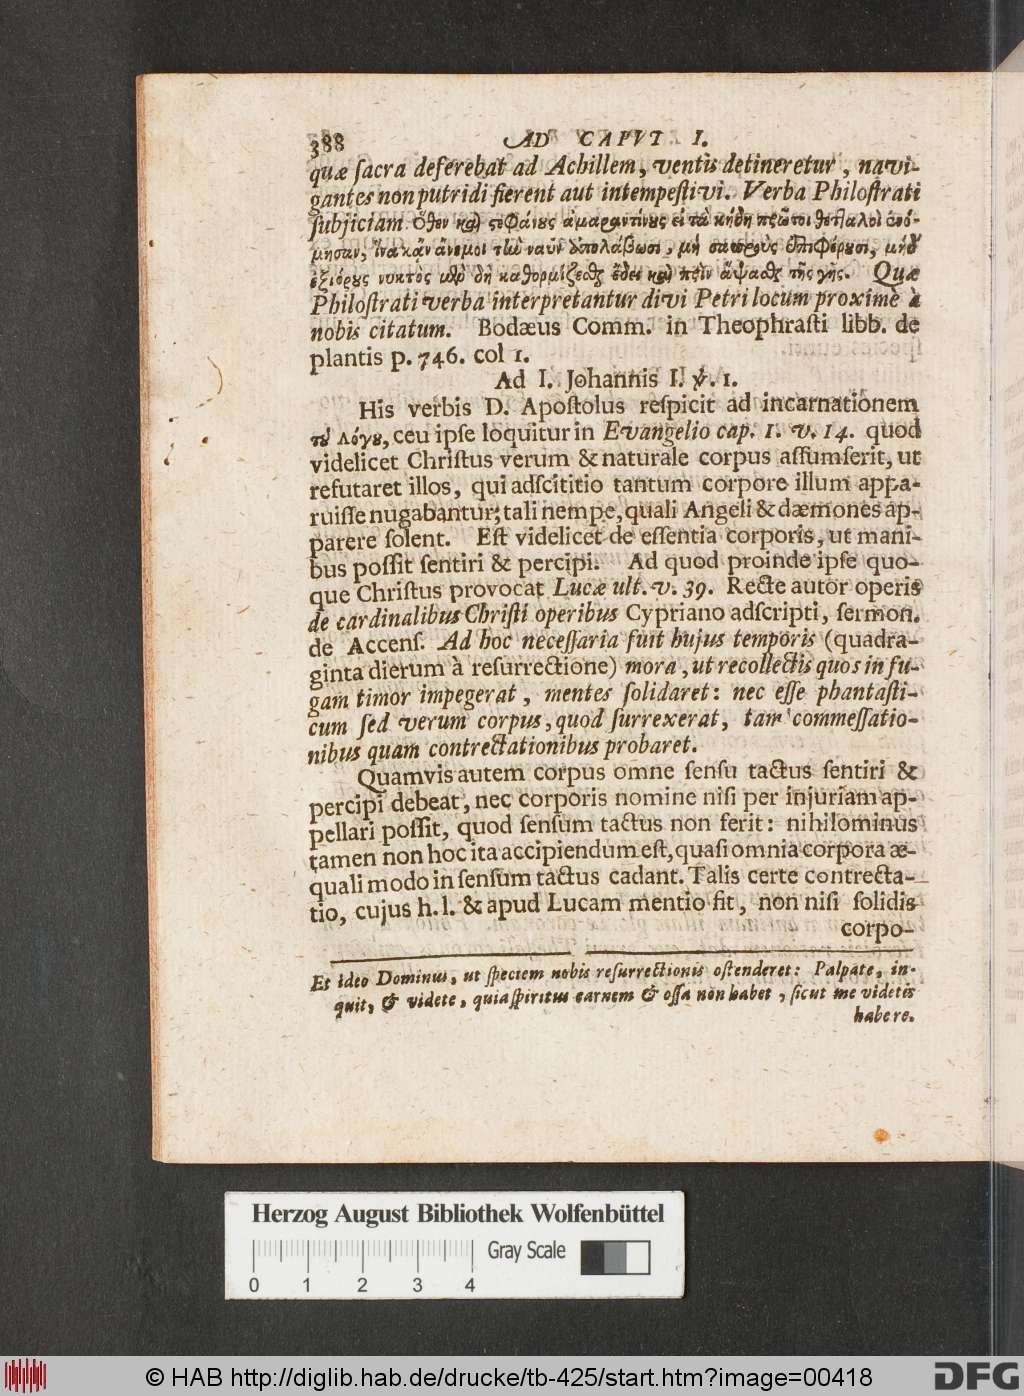 388 AD CAPUT I.
quæ ſacra deferebat ad Achillem, ventis detineretur, navi-
gantes non putridi fierent aut intempeſtivi. Verba Philoſtrati
ſubjiciam. Ὅθεν καὶ ςεφάνους ἀμαραντίνους εἰς τὰ κήδη πρῶτοι θετταλοὶ ἐνό-
μησαν, ἵνα κἂν ἄνεμοι τὼ ναῦν ἀπολάβωσι, μὴ σαπροὺς ἐπιφέρωσι, μηδ'
ἐξώρους νυκτὸς μὲν δὴ καθορμίζεσθζ ἔδει καὶ πρὶν ἅψασθζ τῆς γῆς. Quæ
Philoſtrati verba interpretantur divi Petri locum proximè à
nobis citatum. Bodæus Comm. in Theophraſti libb. de
plantis p. 746. col 1.
Ad I. Johannis I. ℣. 1.
His verbis D. Apoſtolus reſpicit ad incarnationem
τοῦ λόγου, ceu ipſe loquitur in Evangelio cap. 1. v. 14. quod
videlicet Chriſtus verum & naturale corpus aſſumſerit, ut
refutaret illos, qui adſcititio tantum corpore illum appa-
ruiſſe nugabantur; tali nempe, quali Angeli & dæmones ap-
parere ſolent. Eſt videlicet de eſſentia corporis, ut mani-
bus poſſit ſentiri & percipi. Ad quod proinde ipſe quo-
que Chriſtus provocat Lucæ ult. v. 39. Recte autor operis
de cardinalibus Chriſti operibus Cypriano adſcripti, ſermon.
de Accenſ. Ad hoc neceſſaria fuit hujus temporis (quadra-
ginta dierum à reſurrectione) mora, ut recollectis quos in fu-
gam timor impegerat, mentes ſolidaret: nec eſſe phantaſti-
cum ſed verum corpus, quod ſurrexerat, tam commeſſatio-
nibus quam contrectationibus probaret.
Quamvis autem corpus omne ſenſu tactus ſentiri &
percipi debeat, nec corporis nomine niſi per injuriam ap-
pellari poſſit, quod ſenſum tactus non ferit: nihilominus
tamen non hoc ita accipiendum eſt, quaſi omnia corpora æ-
quali modo in ſenſum tactus cadant. Talis certe contrecta-
tio, cujus h. l. & apud Lucam mentio fit, non niſi ſolidis
corpo-
Et ideo Dominus, ut ſpeciem nobis reſurrectionis oſtenderet: Palpate, in-
quit, & videte, quia ſpiritus carnem & oſſa non habet, ſicut me videtis
habere.
Herzog August Bibliothek Wolfenbüttel
Gray Scale
0 1 2 3 4
© HAB http://diglib.hab.de/drucke/tb-425/start.htm?image=00418
DFG